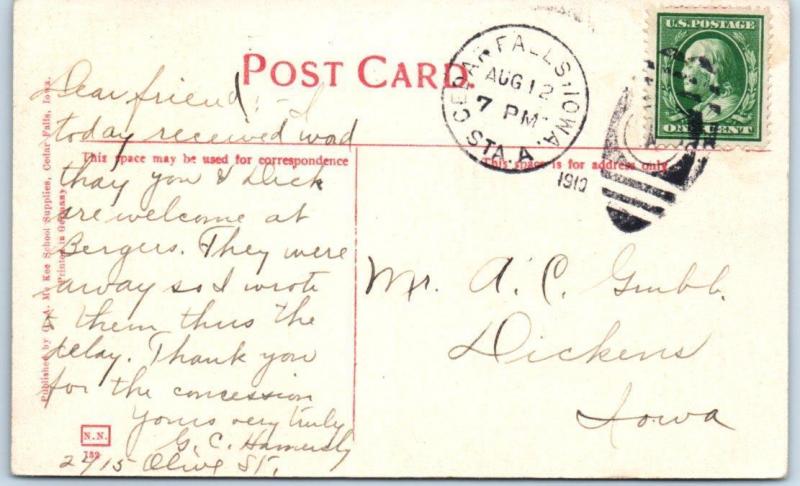 POST CARD.
CEDAR FALLS, IOWA.
AUG 12
7 PM
STA. A.
1910
U.S. POSTAGE
ONE CENT
Dear friend: - I
today received word
This space may be used for correspondence
This space is for address only.
thay you & Dick
are welcome at
Bergers. They were
away so I wrote
to them thus the
delay. Thank you
for the concession
Yours very truly
G. C. Hamersly
2715 Olive St.
Mr. A. C. Gmbb.
Dickens
Iowa
Published by G. A. Mc Kee School Supplies, Cedar Falls, Iowa.
Printed in Germany
N.N.
159